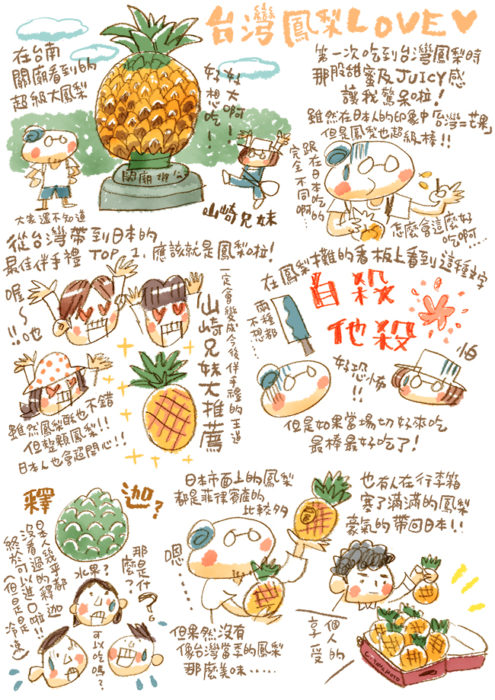 台灣鳳梨LOVE
在台南
關廟看到的
超級大鳳梨
好大啊!
好想吃!
關廟
山崎兄妹
大家還不知道
第一次吃到台灣鳳梨時
那股甜蜜及JUICY感
讓我驚呆啦!
雖然在日本人的印象中「台灣=芒果」
但是鳳梨也超級棒!!
跟在日本吃的
完全不同啊…
怎麼會這麼好
吃啊…
從台灣帶到日本的
最佳伴手禮 TOP 1, 應該就是鳳梨啦!
喔~!!
一定會變成今後伴手禮的王道
山崎兄妹大推薦
雖然鳳梨酥也不錯
但整顆鳳梨!!
日本人也會超開心!!
在鳳梨攤的看板上看到這種字
自殺
他殺
兩種都
不想…
好恐怖!!
但是如果當場切好來吃
最棒最好吃了!
釋迦?
那是什麼?
水果?
可以吃嗎?
日本人幾乎都
沒看過的釋迦
終於可以進口啦!!
(但是是冷凍)
日本市面上的鳳梨
都是菲律賓產的
比較多
嗯……
但果然沒有
像台灣當季的鳳梨
那麼美味……
也有人在行李箱
塞了滿滿的鳳梨
豪氣的帶回日本!!
一個人的
享受